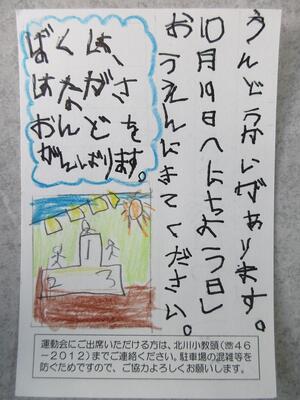 うんどうかいがあります。
10月19日(にちよう日)
おうえんにきてください。
ぼくは、
はながさ
おんどを
がんばります。
1
2 3
運動会にご出席いただける方は、北川小教頭(☎46
-2012)までご連絡ください。駐車場の混雑等を
防ぐためですので、ご協力よろしくお願いします。